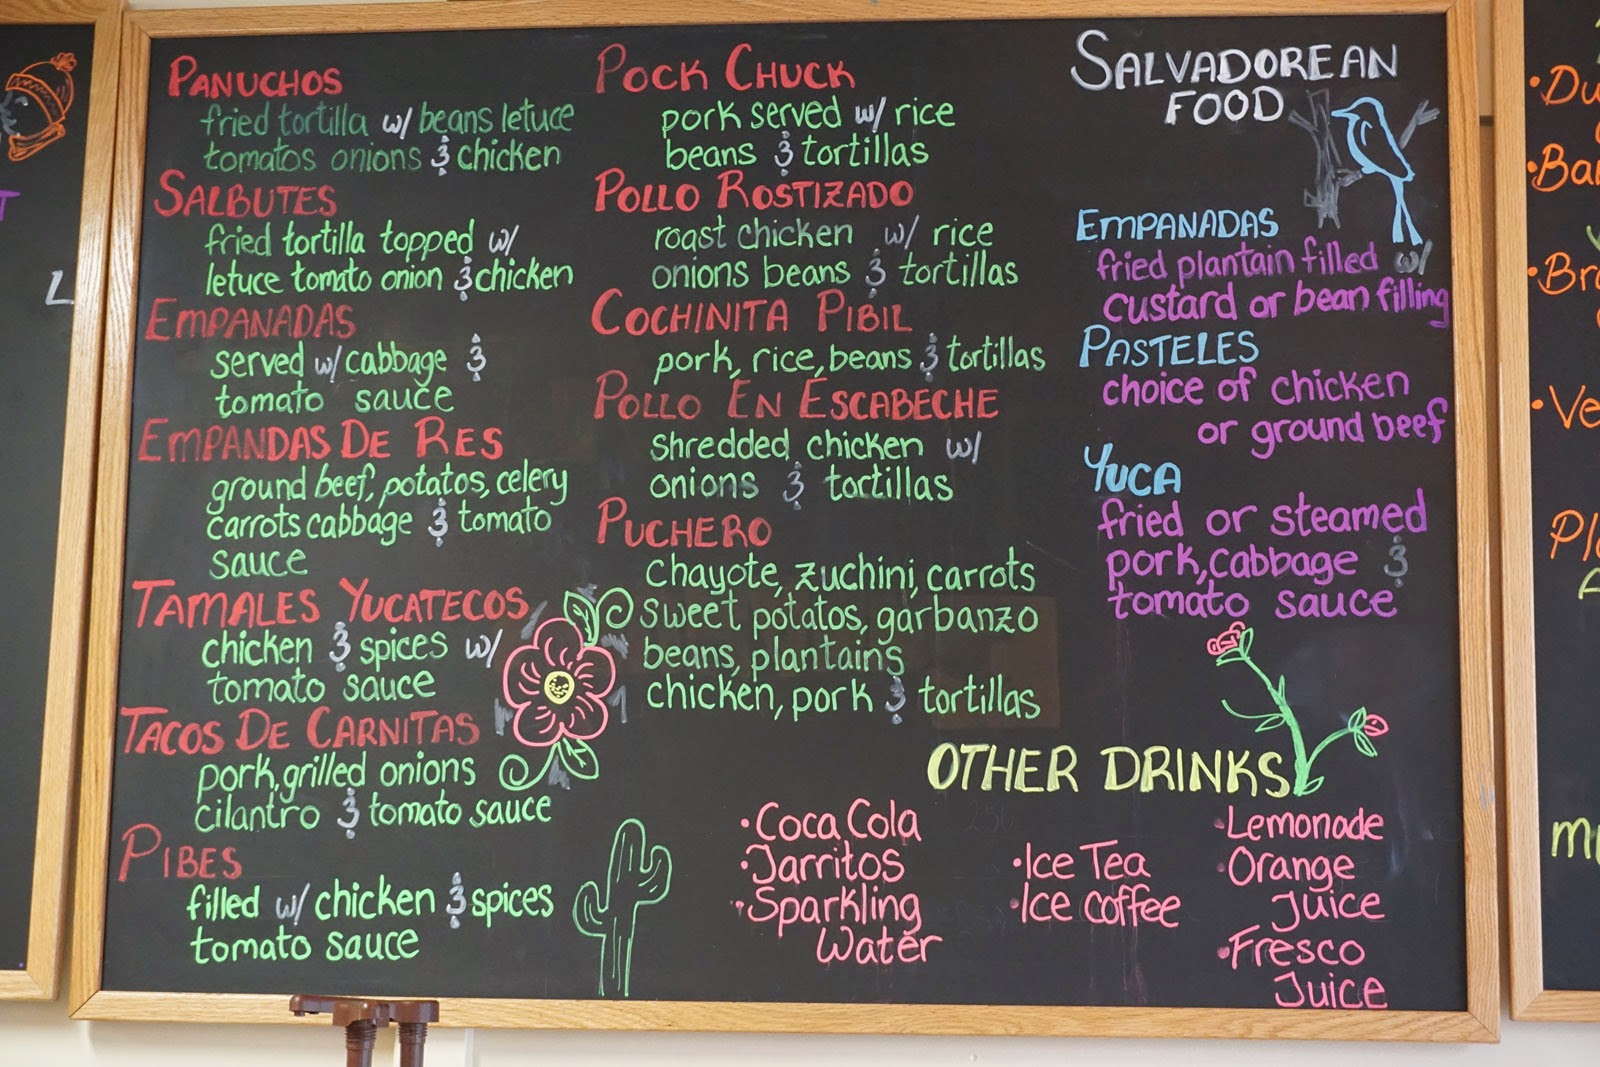 PANUCHOS
fried tortilla w/ beans letuce
tomatos onions & chicken
SALBUTES
fried tortilla topped w/
letuce tomato onion & chicken
EMPANADAS
served w/ cabbage &
tomato sauce
EMPANDAS DE RES
ground beef, potatos, celery
carrots cabbage & tomato
sauce
TAMALES YUCATECOS
chicken & spices w/
tomato sauce
TACOS DE CARNITAS
pork, grilled onions
cilantro & tomato sauce
PIBES
filled w/ chicken & spices
tomato sauce
POCK CHUCK
pork served w/ rice
beans & tortillas
POLLO ROSTIZADO
roast chicken w/ rice
onions beans & tortillas
COCHINITA PIBIL
pork, rice, beans & tortillas
POLLO EN ESCABECHE
shredded chicken w/
onions & tortillas
PUCHERO
chayote, zuchini, carrots
sweet potatos, garbanzo
beans, plantains
chicken, pork & tortillas
SALVADOREAN
FOOD
EMPANADAS
fried plantain filled w/
custard or bean filling
PASTELES
choice of chicken
or ground beef
YUCA
fried or steamed
pork, cabbage &
tomato sauce
OTHER DRINKS
• Coca Cola
• Jarritos
• Sparkling
Water
• Ice Tea
• Ice coffee
• Lemonade
• Orange
Juice
• Fresco
Juice